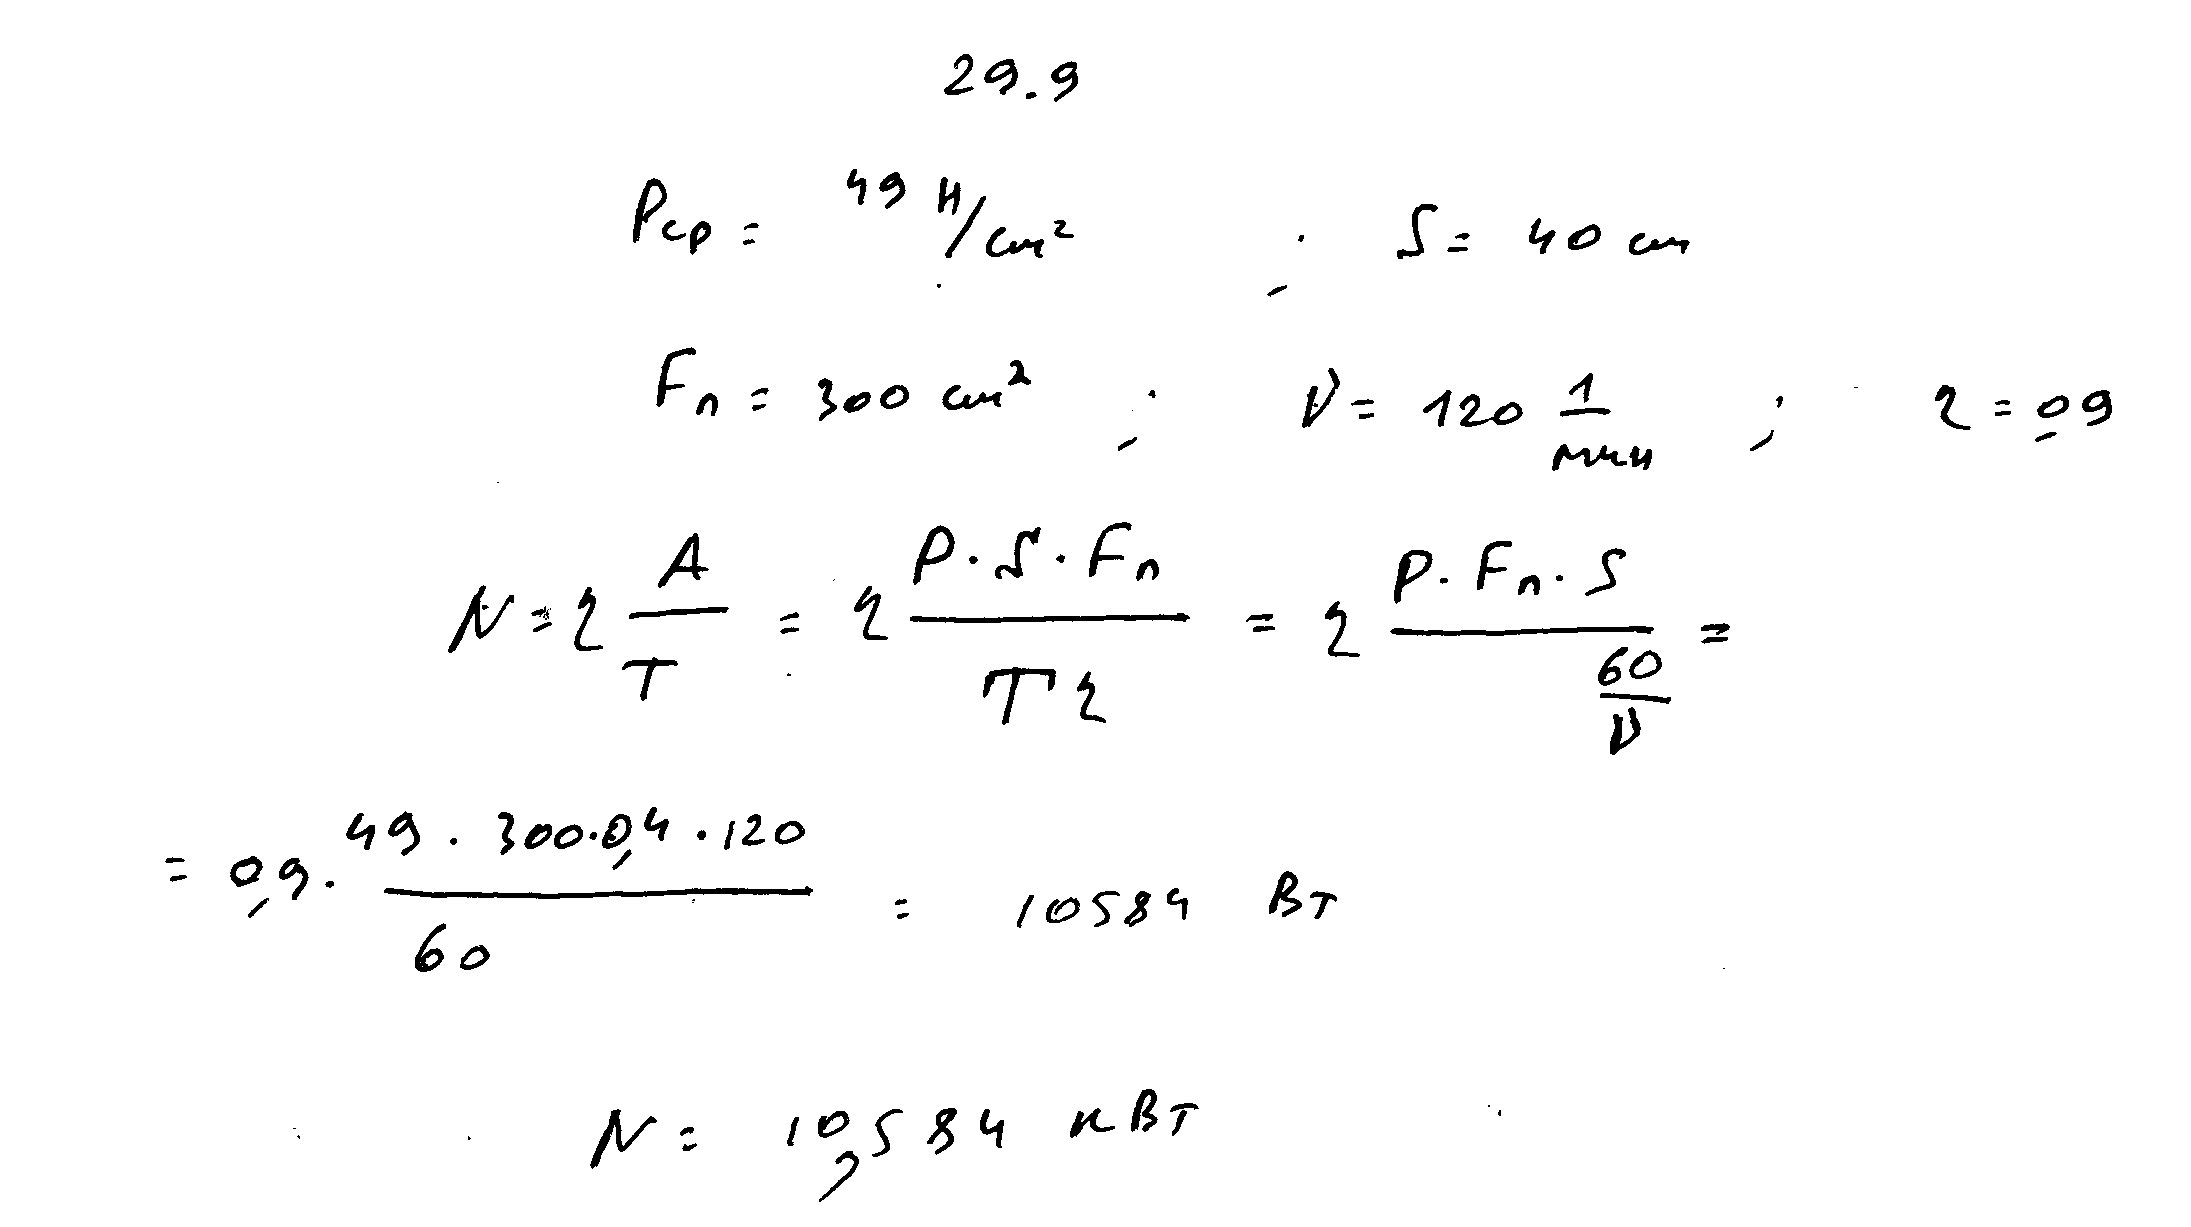 29.9
Pср = 49 Н/см² ; S = 40 см
Fп = 300 см² ; ν = 120 1/мин ; η = 0,9
N = η A/T = η P·S·Fп/Tη = η P·Fп·S/(60/ν) =
= 0,9 · 49·300·0,4·120/60 = 10584 Вт
N = 10,584 кВт